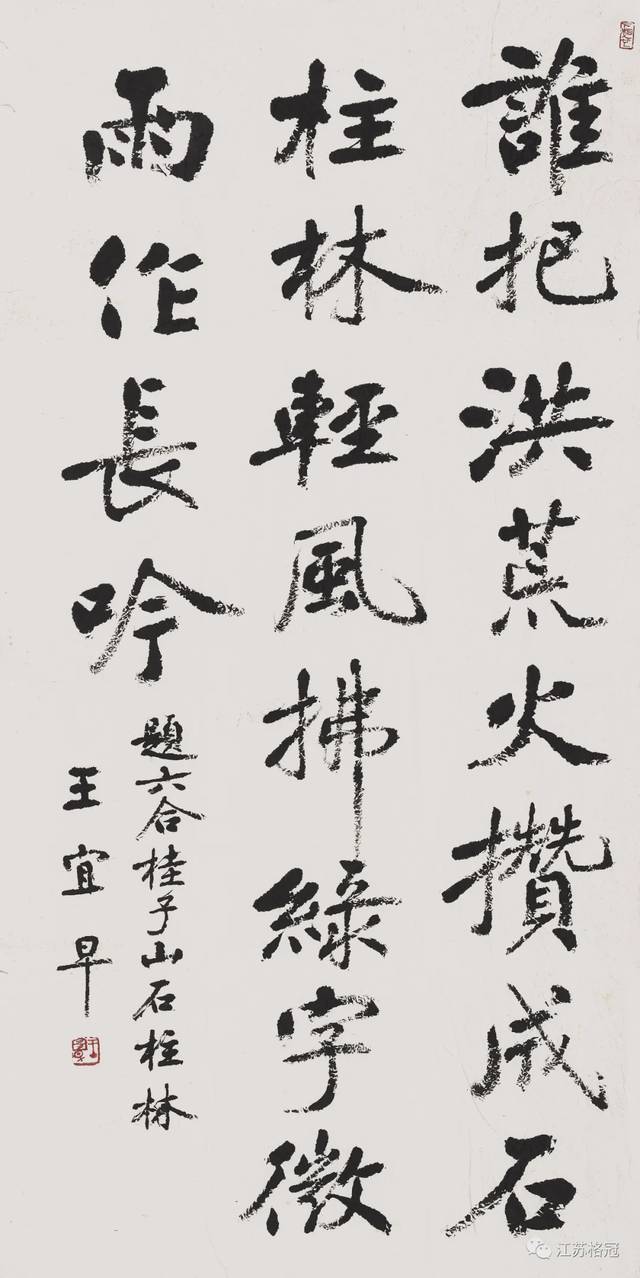 誰把洪荒火攢成石
柱林輕風拂綠字微
雨作長吟
題六合桂子山石柱林
王宜早
江苏格冠